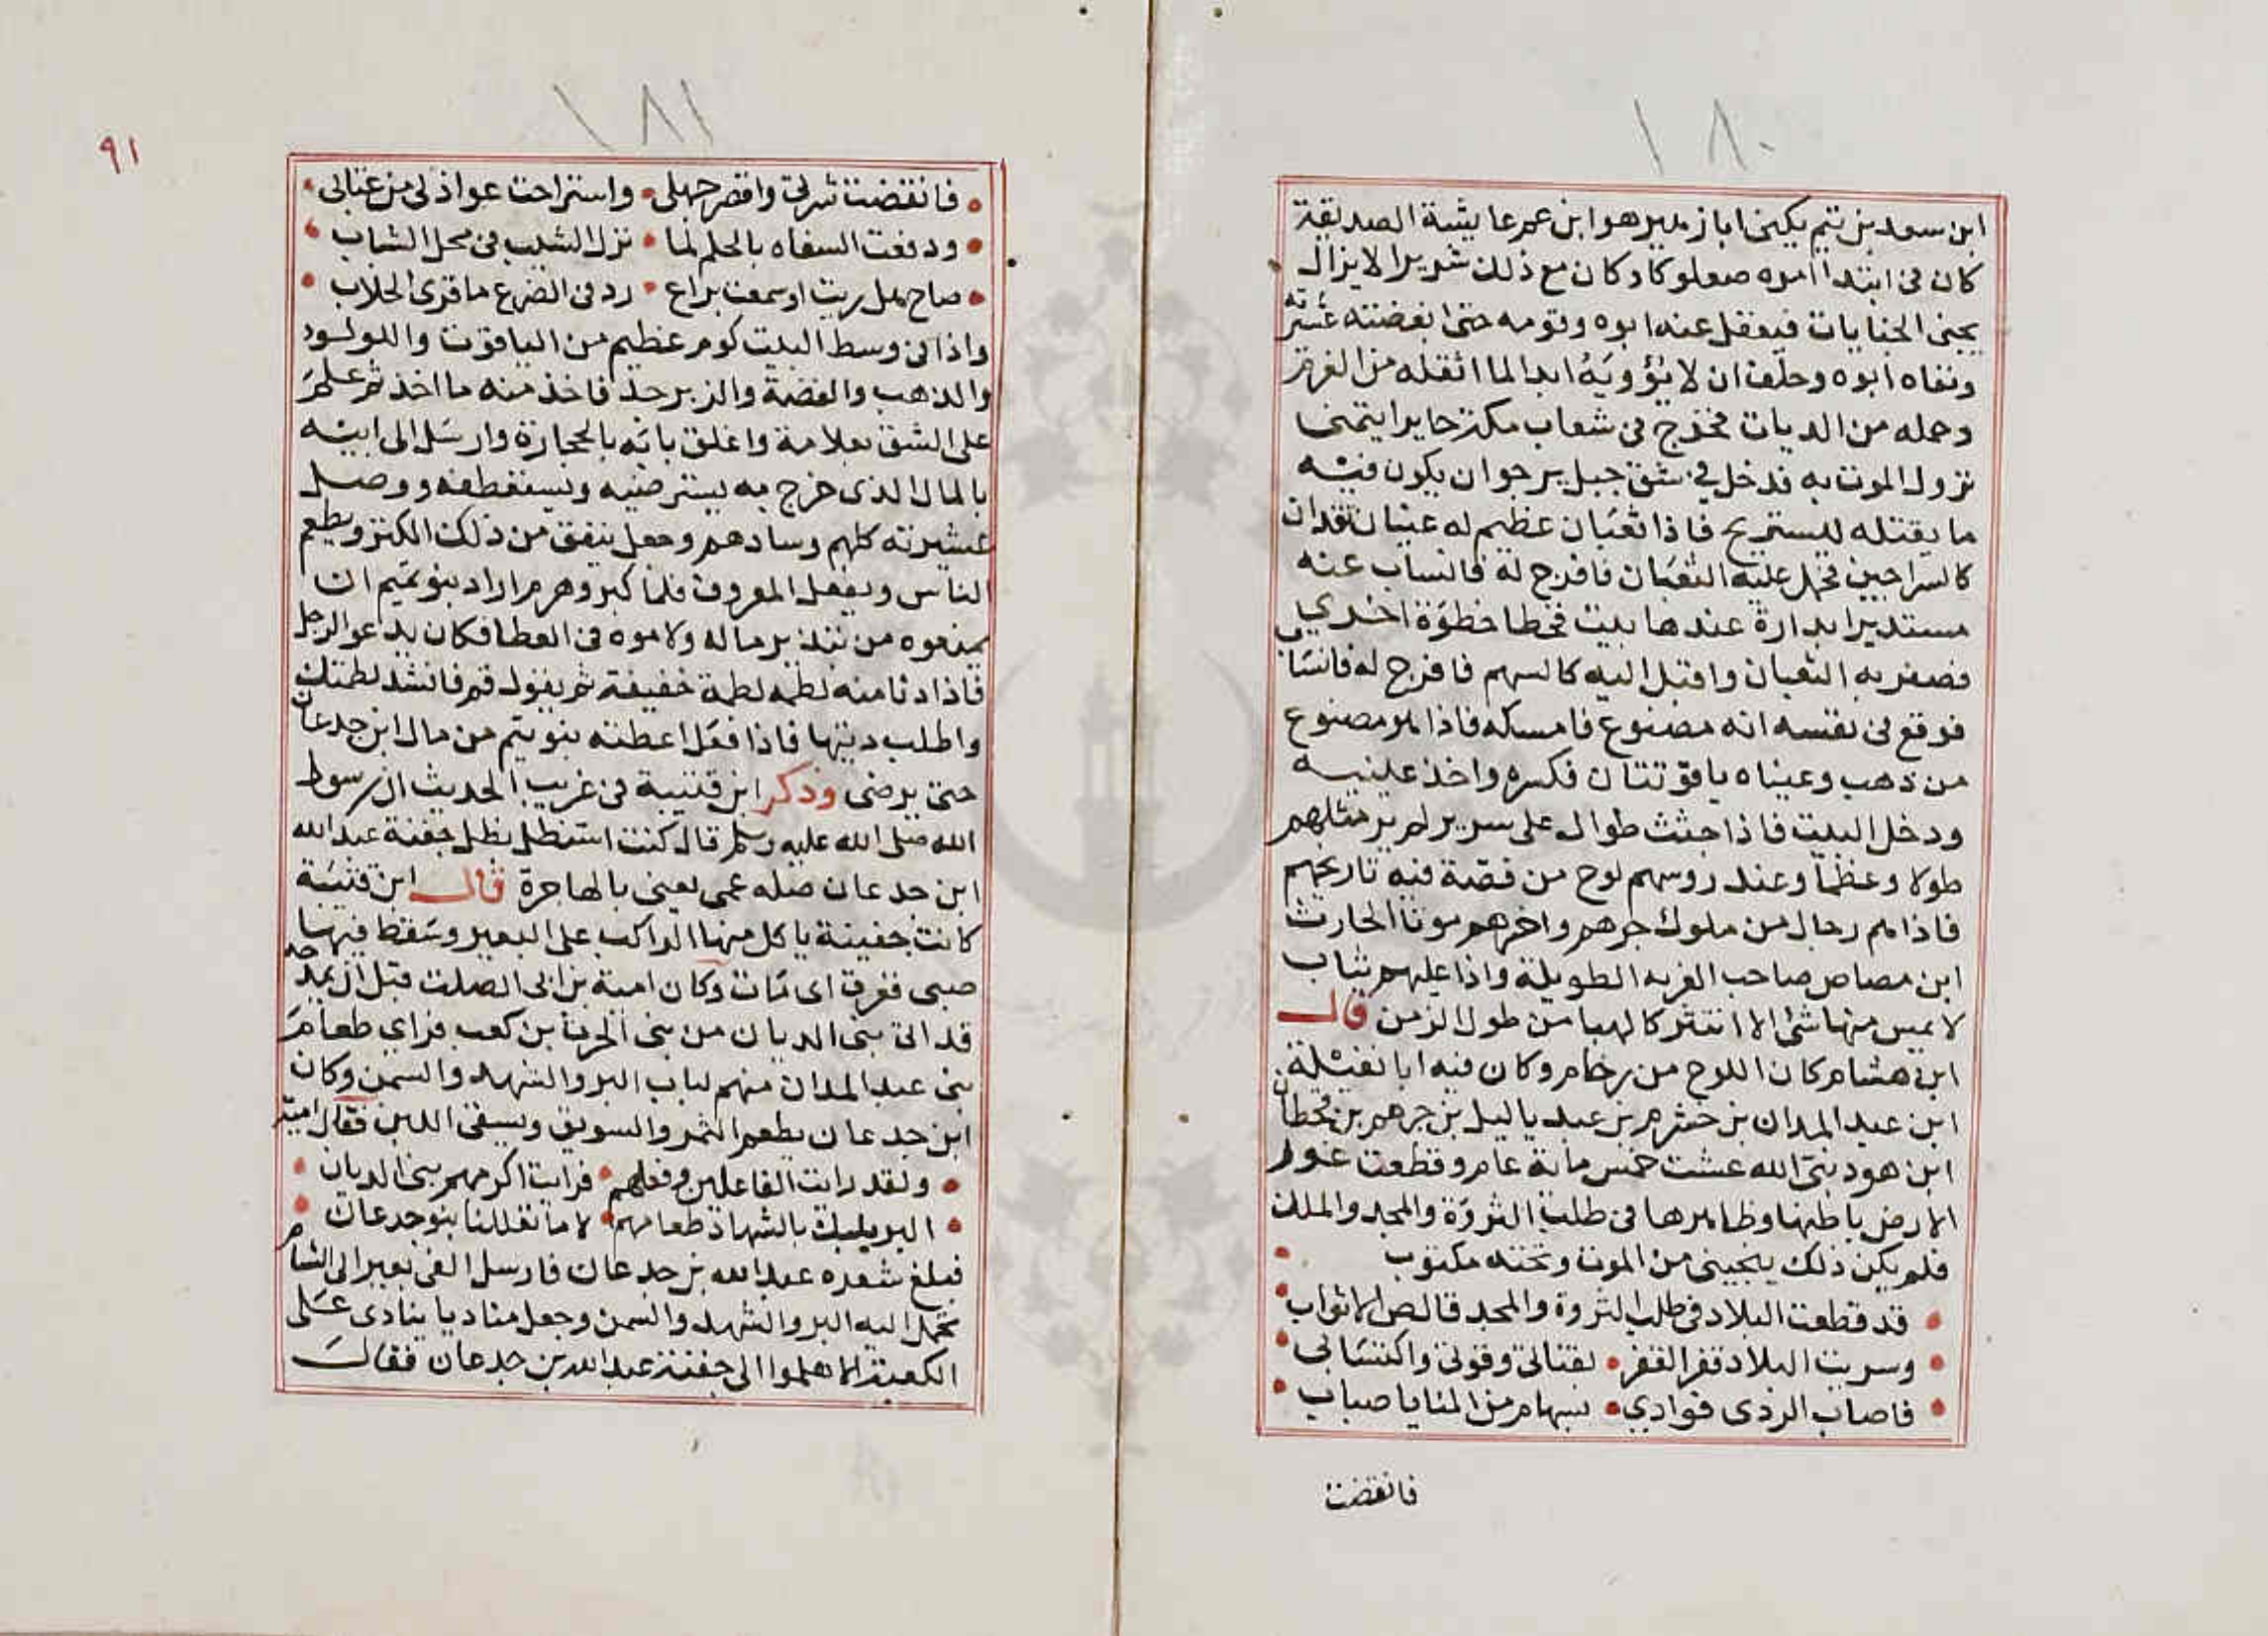 ١٨٠
ابن سعد بن تيم يكنى ابا زهير هو ابن عم عايشة الصديقة
كان في ابتدا امره صعلوكا وكان مع ذلك شريرا لا يزال
يجنى الجنايات فيعقل عنه ابوه وقومه حتى ابغضته عشيرته
ونفاه ابوه وحلف ان لا يؤويه ابدا لما اثقله من الغرم
وحمله من الديات فخرج في شعاب مكة حايرا يتمنى
نزول الموت به فدخل في شق جبل يرجوان يكون فيه
ما يقتله ليستريح فاذا ثعبان عظيم له عينان تقدان
كالسراجين فحمل عليه الثعبان فافرج له فانساب عنه
مستديرا بدارة عندها بيت فخطا خطوة اخرى
فصفر به الثعبان واقبل اليه كالسهم فافرج له فانساب
فوقع في نفسه انه مصنوع فامسكه فاذا هو مصنوع
من ذهب وعيناه ياقوتتان فكسره واخذ عينيه
ودخل البيت فاذا جثث طوال على سرير لم ير مثلهم
طولا وعظما وعند روسهم لوح من فضة فيه تاريخهم
فاذا هم رجال من ملوك جرهم واخرهم موتا الحارث
ابن مضاض صاحب الغربه الطويلة واذا عليهم ثياب
لا يمس منها شئ الا انتثر كالهبا من طول الزمن قال
ابن هشام كان اللوح من رخام وكان فيه انا نفيلة
ابن عبد المدان بن خشرم بن عبد ياليل بن جرهم بن قحطان
ابن هود نبى الله عشت خمس ماية عام وقطعت غور
الارض باطنها وظاهرها في طلب الثروة والمجد والملك
فلم يكن ذلك ينجينى من الموت وتحته مكتوب
قد قطعت البلاد في طلب الثروة والمجد قالص الاثواب
وسريت البلاد قفرا لقفر • لقناتى وقوتى واكتسابى
فاصاب الردى فوادي • بسهام من المنايا صياب
فانقضت
١٨١
٩١
فانقضت شرتى واقصر جهلى • واستراحت عواذلى من عتابى
ودفعت السفاه بالحلم لما • نزل الشيب في محل الشباب
صاح هل ريت او سمعت براع • رد في الضرع ما قرى الحلاب
واذا في وسط البيت كوم عظيم من الياقوت واللولو
والذهب والفضة والزبرجد فاخذ منه ما اخذ ثم علم
على الشق بعلامة واغلق بابه بالحجارة وارسل الى ابيه
بالمال الذى خرج به يسترضيه ويستعطفه ووصل
عشيرته كلهم وسادهم وجعل ينفق من ذلك الكنز ويطعم
الناس ويفعل المعروف فلما كبر وهرم اراد بنو تميم ان
يمنعوه من تبذير ماله ولاموه في العطا فكان يدعو الرجل
فاذا دنا منه لطمه لطمة خفيفة ثم يقول قم فانشد لطمتك
واطلب ديتها فاذا فعل اعطته بنو تيم من مال ابن جدعان
حتى يرضى وذكر ابن قتيبة في غريب الحديث ان رسول
الله صلى الله عليه وسلم قال كنت استظل بظل جفنة عبد الله
ابن جدعان صكه عمى يعنى بالهاجرة قال ابن قتيبة
كانت جفينة ياكل منها الراكب على البعير وسقط فيها
صبى فغرق اى مات وكان امية بن ابى الصلت قبل ان يمدحه
قد اتى بنى الديان من بنى الحرث بن كعب فراى طعام
بنى عبد المدان منهم لباب البر والشهد والسمن وكان
ابن جدعان يطعم التمر والسويق ويسقى اللبن فقال امية
ولقد رايت الفاعلين وفعلهم • فرايت اكرمهم بنى الديان
البر يلبك بالشهاد طعامهم • لا ما تعللنا بنو جدعان
فبلغ شعره عبد الله بن جدعان فارسل الفى بعير الى الشام
تحمل اليه البر والشهد والسمن وجعل مناديا ينادى على
الكعبة الا هلموا الى جفنة عبد الله بن جدعان فقال